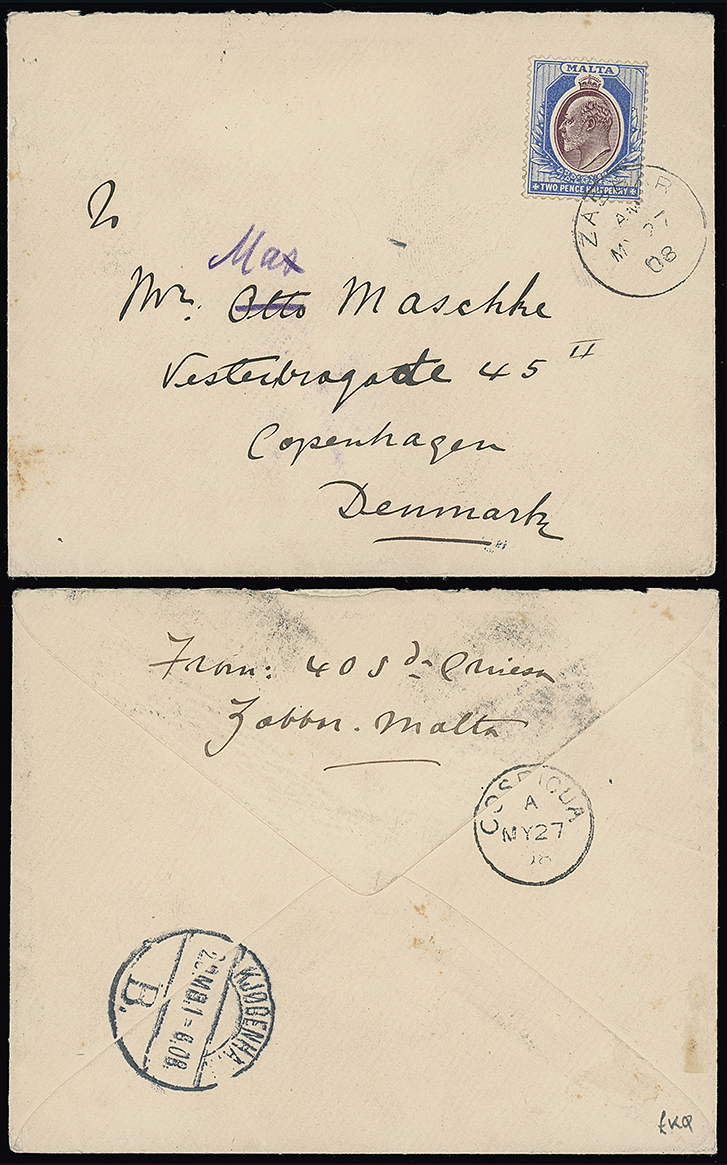 MALTA
TWO PENCE HALFPENNY
ZABBAR
AM
MY 27
08
To
Max
Mr. Otto Maschke
Vesterbrogade 45 II
Copenhagen
Denmark
From: 40 Sda
Zabbar. Malta
COSPICUA
A
MY 27
08
KJØBENHA
2.OMB.1=6.08.
B.